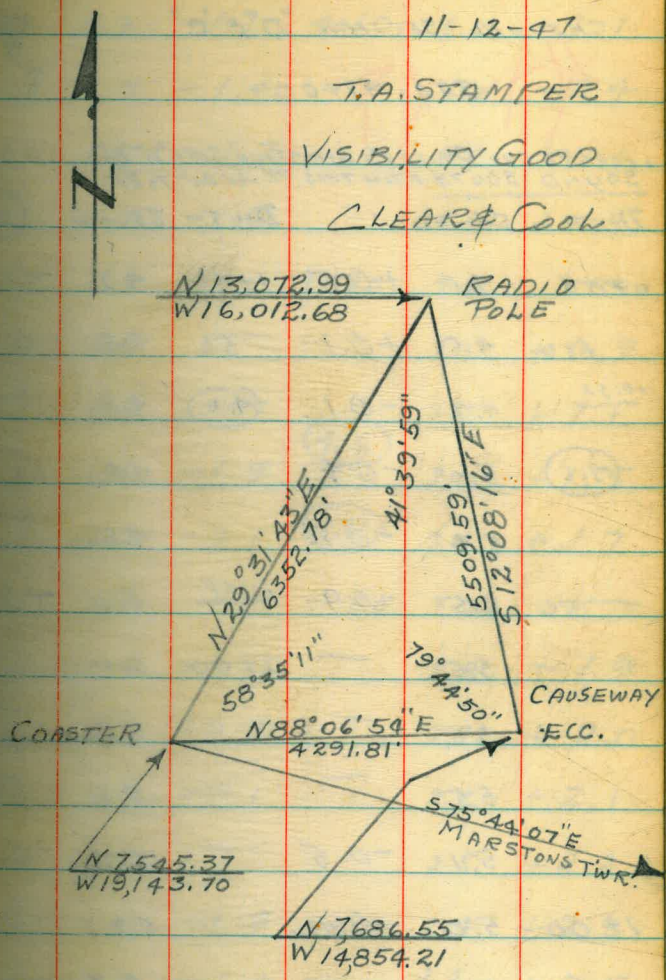 11-12-47
T.A. STAMPER
VISIBILITY GOOD
CLEAR & COOL
N
N 13,072.99
W 16,012.68
RADIO
POLE
N 29° 31' 43" E
6352.78'
41° 39' 59"
5509.59'
S 12° 08' 16" E
58° 35' 11"
79° 44' 50"
CAUSEWAY
ECC.
COASTER
N 88° 06' 54" E
4291.81'
S 75° 44' 07" E
MARSTONS TWR.
N 7,545.37
W 19,143.70
N 7,686.55
W 14,854.21